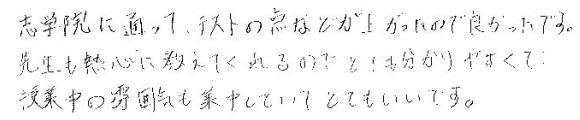 志学院に通って、テストの点などが上がったので良かったです。
先生も熱心に教えてくれるのでとても分かりやすくて
授業中の雰囲気も集中していてとてもいいです。